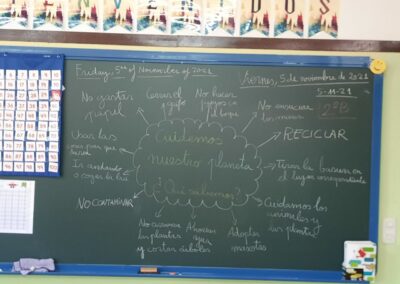 VENIDOS
Friday, 5th of November of 2021
Viernes, 5 de noviembre de 2021
5-11-21
2ºB
No gastar
papel
Cerrar el
grifo
No hacer
fuegos en
el bosque
No ensuciar
los mares
RECICLAR
Tirar la basura en
el lugar correspondiente
Cuidamos los
animales y
las plantas
Adoptar
mascotas
Ahorrar
agua
No arrancar
las plantas
y cortar árboles
NO CONTAMINAR
Ir andando
o coger la bici
Usar las
Cuidemos
nuestro planeta
¿Qué sabemos?